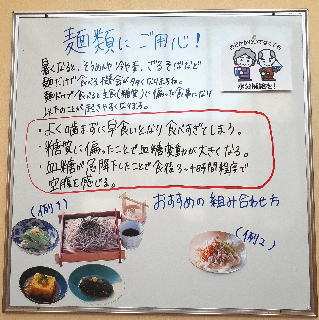 麺類にご用心！
暑くなると、そうめんや冷や麦、ざるそばなど
麺だけ食べる機会が多くなりますね。
麺だけ食べると主食(糖質)に偏った食事になり
以下のことが起きやすくなります。
・よく噛まずに早食いとなり食べすぎてしまう。
・糖質に偏ったことで血糖変動が大きくなる。
・血糖が急降下したことで食後3~4時間程度で
空腹を感じる。
おすすめの組み合わせ方
(例1)
(例2)
のどがかわいてなくても
水分補給を！